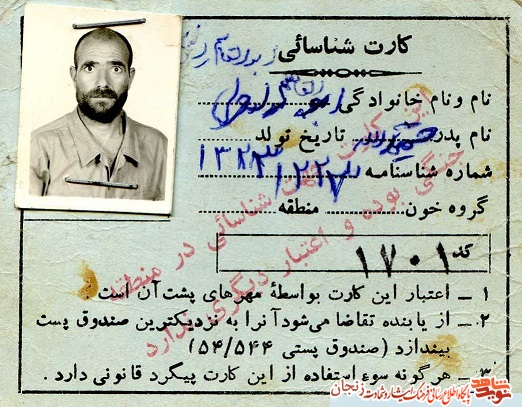 کارت شناسائی
نام و نام خانوادگی
نام پدر تاریخ تولد ۱۳۲۲
شماره شناسنامه ۱۲۲۷
گروه خون منطقه
کد ۱۷۰۱
این کارت جهت شناسائی در منطقه
جنگی بوده و اعتبار دیگری ندارد
۱ ــ اعتبار این کارت بواسطهٔ مهرهای پشت آن است .
۲ ــ از یابنده تقاضا می‌شود آنرا به نزدیکترین صندوق پست
بیندازد (صندوق پستی ۵۴/۵۴۴)
۳ ــ هرگونه سوء استفاده از این کارت پیگرد قانونی دارد .
نوید شاهد
پایگاه اطلاع رسانی فرهنگ ایثار و شهادت زنجان